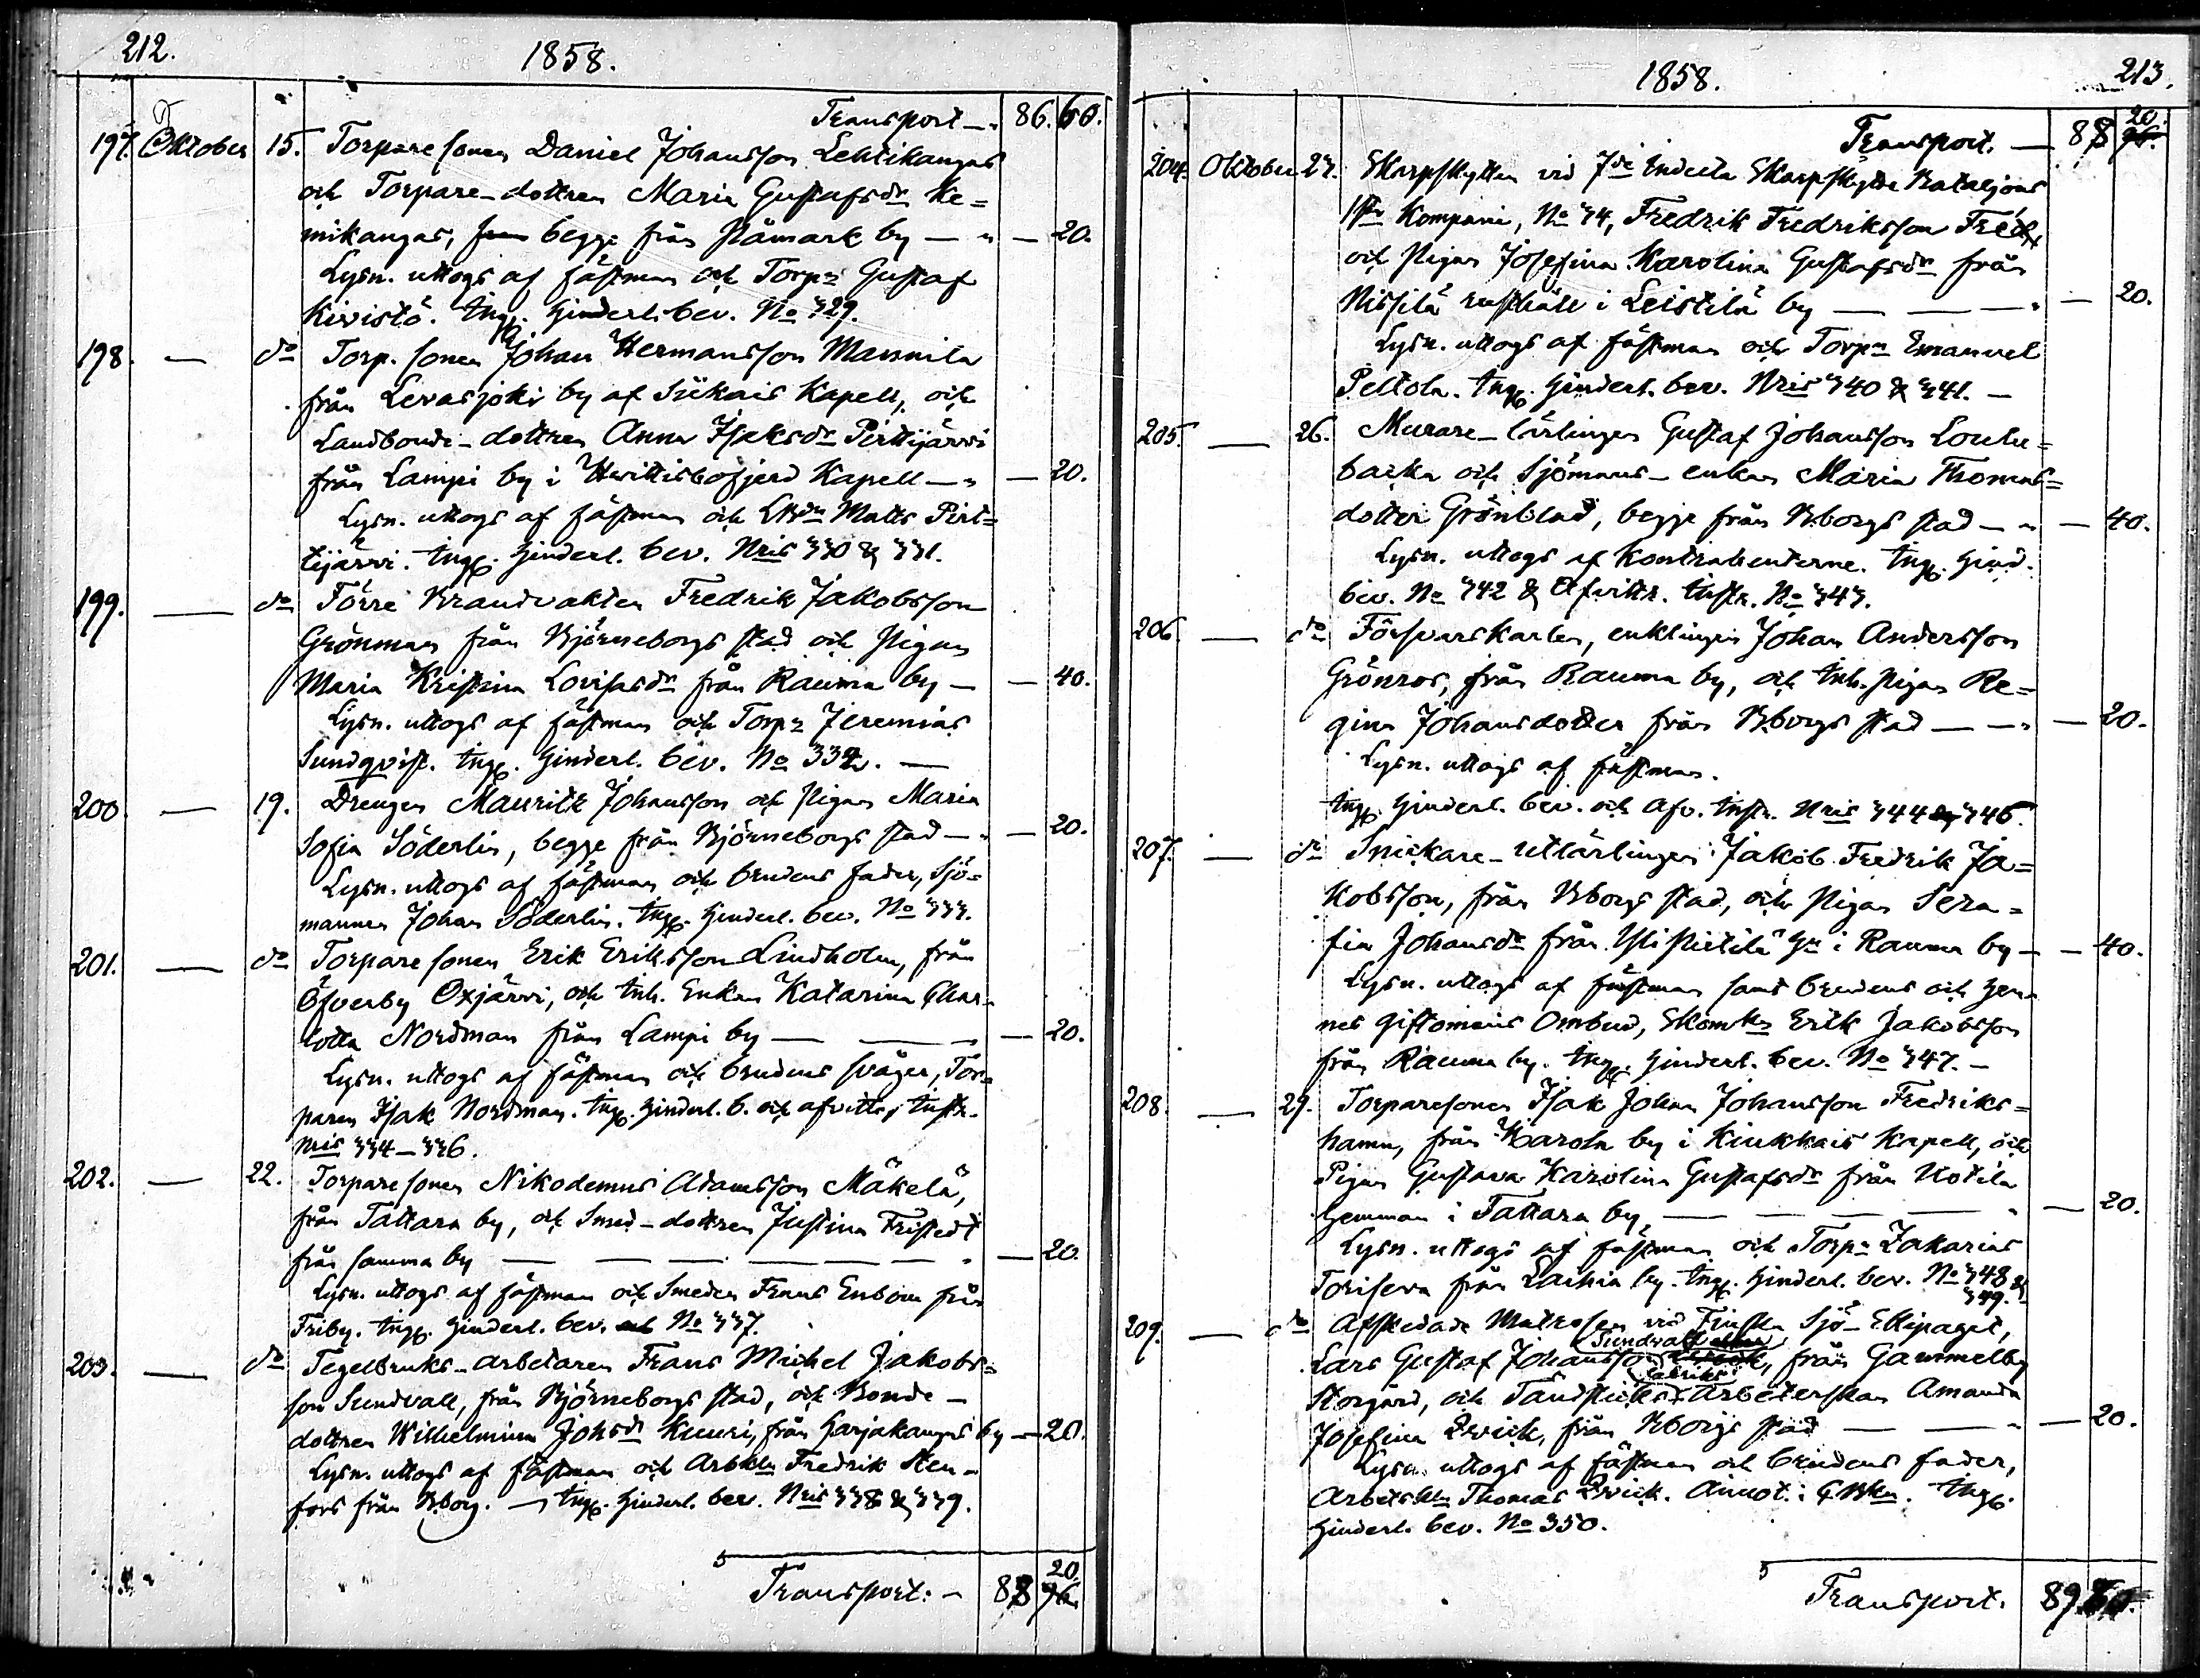 212.
1858.
Transport — 86. 60.
197. Oktober 15. Torparesonen Daniel Johansson Lehtikangas
och Torpare-dottren Maria Gustafsdr Ke=
mikangas, begge från Påmark by — " — 20.
Lysn. uttogs af fästman och Torpn Gustaf
Kivistö. Ingg. hinderl. bev. No 329.
198. — do Torp. sonen Johan Hermansson Mannila
från Levasjoki by af Siikais Kapell, och
Landbonde-dottren Anna Isaksdr Pirttijärvi
från Lampi by i Hvittisbofjerd Kapell — " — 20.
Lysn. uttogs af fästman och Lbdn Matts Pirt=
tijärvi. Ingg. hinderl. bev. Nris 330 & 331.
199. — do Förre Brandvakten Fredrik Jakobsson
Grönman från Björneborgs stad och Pigan
Maria Kristina Lovisasdr från Rauma by — — 40.
Lysn. uttogs af fästman och Torpn Jeremias
Sundqvist. Ingg. hinderl. bev. No 332. —
200. — 19. Drengen Mauritz Johansson och Pigan Maria
Sofia Söderlin, begge från Björneborgs stad — " — 20.
Lysn. uttogs af fästman och brudens fader, Sjö=
mannen Johan Söderlin. Ingg. hinderl. bev. No 333.
201. — do Torparesonen Erik Eriksson Lindholm, från
Öfverby Oxjärvi, och Inh. Enkan Katarina Char=
lotta Nordman från Lampi by — — — 20.
Lysn. uttogs af fästman och brudens svåger, Tor=
paren Isak Nordman. Ingg. hinderl. b. och afvittr. instr.
Nris 334–336.
202. — 22. Torparesonen Nikodemus Adamsson Mäkelä,
från Tattara by, och Smed-dottren Justina Fristedt
från samma by — — — — — — " — 20.
Lysn. uttogs af fästman och Smeden Frans Enbom från
Friby. Ingg. hinderl. bev. No 337.
203. — do Tegelbruks-arbetaren Frans Michel Jakobs=
son Sundvall, från Björneborgs stad, och Bonde-
dottren Wilhelmina Johsdr Kuuri, från Harjakangas by — 20.
Lysn. uttogs af fästman och Arbkn Fredrik Sten=
fors från Bborg. — Ingg. hinderl. bev. Nris 338 & 339.
Transport. — 88 20.
1858.
213.
Transport. — 88 20.
204. Oktober 23. Skarpskytten vid 7de Indelta Skarpskytte Bataljons
1sta Kompani, No 74, Fredrik Fredriksson
och Pigan Josefina Karolina Gustafsdr från
Nissilä rusthåll i Leistilä by — — — " — 20.
Lysn. uttogs af fästman och Torpn Emanuel
Peltola. Ingg. hinderl. bev. Nris 340 & 341. —
205. — 26. Murare-lärlingen Gustaf Johansson Louhe=
backa och Sjömans-enkan Maria Thomas=
dotter Grönblad, begge från Bborgs stad — " — 40.
Lysn. uttogs af Kontrahenterne. Ingg. hind.
bev. No 342 & Afvittr. instr. No 343.
206. — do Försvarskarlen, enklingen Johan Andersson
Grönros, från Rauma by, och Inh. Pigan Re=
gina Johansdotter från Bborgs stad — — " — 20.
Lysn. uttogs af fästman.
Ingg. hinderl. bev. och Afv. instr. Nris 344 346.
207. — do Snickare-utlärlingen Jakob Fredrik Ja=
kobsson, från Bborgs stad, och Pigan Sera=
fia Johansdr från Yli Pietilä Hn i Rauma by — — 40.
Lysn. uttogs af fästman samt brudens och hen=
nes giftomans Ombud, Skomkn Erik Jakobsson
från Rauma by. Ingg. hinderl. bev. No 347. —
208. — 29. Torparesonen Isak Johan Johansson Fredriks=
hamn, från Karola by i Kiukkais Kapell, och
Pigan Gustava Karolina Gustafsdr från Uotila
hemman i Tattara by — — — — " — 20.
Lysn. uttogs af fästman och Torpn Zakarias
Toriseva från Lachia by. Ingg. hinderl. bev. No 348 &
349.
209. — do Afskedade Matrosen vid Finska Sjö-Ekipaget,
Sundvall
Lars Gustaf Johansson, från Gammelby
fabriks
Storgård, och Tändsticks Arbeterskan Amanda
Josefina Ervick, från Bborgs stad — — " — 20.
Lysn. uttogs af fästman och brudens fader,
Arbetskn Thomas Ervick. Ingg.
hinderl. bev. No 350.
Transport. 89.